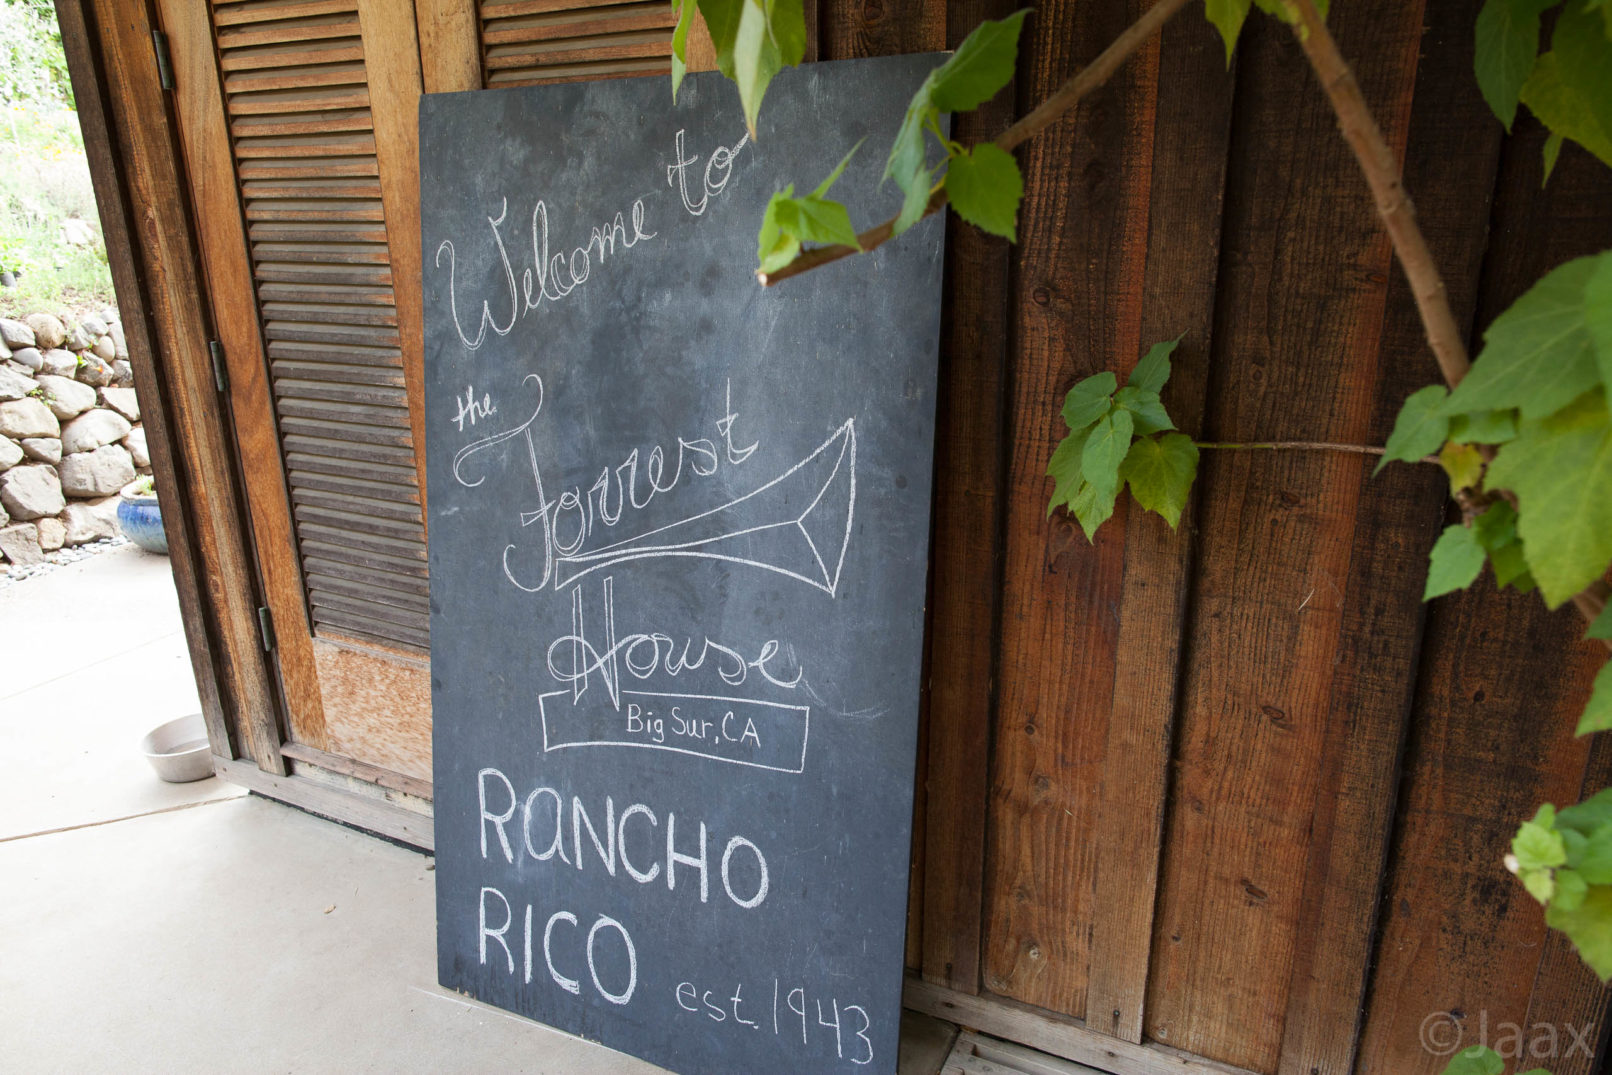 Welcome to
the Forrest
House
Big Sur, CA
RANCHO
RICO est. 1943
©Jaax